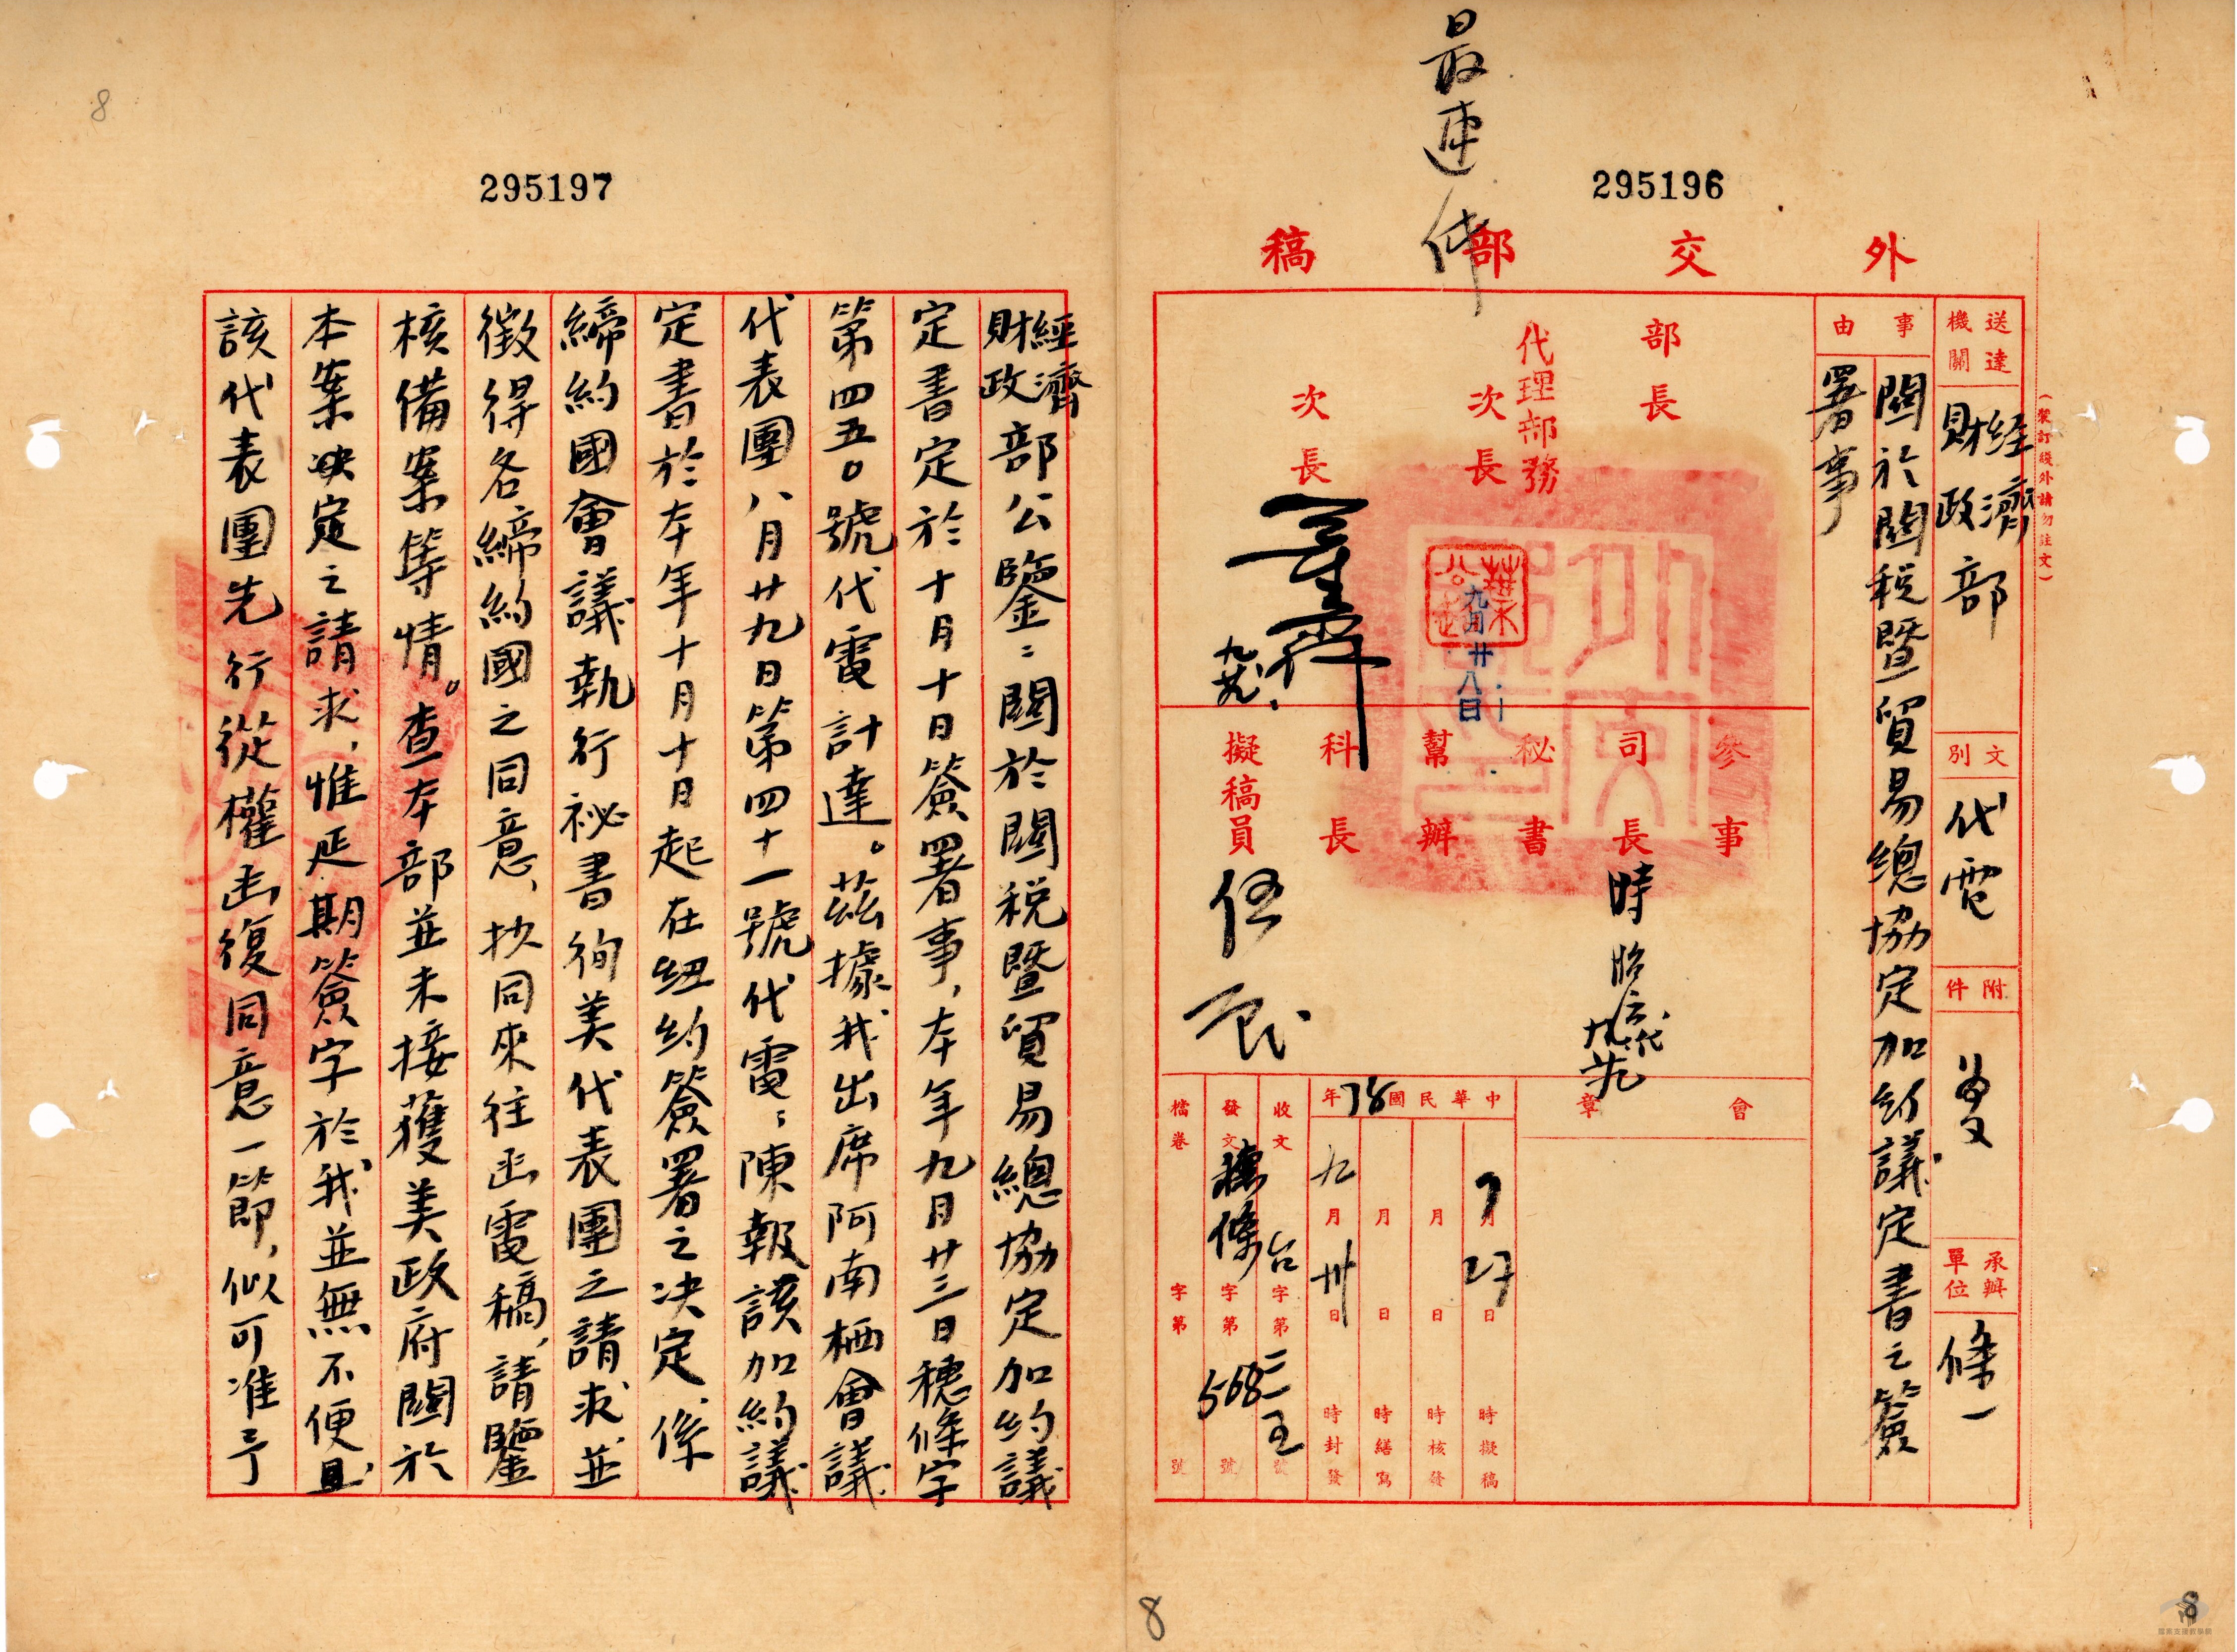 最速件
295196
外交部稿
(裝訂線外請勿註文)
送達機關
經濟財政部
文別
代電
附件
承辦單位
條一
事由
關於關稅暨貿易總協定加約議定書之簽
署事
部長
代理部務
次長
次長
葉公超
九月廿八日
參事
司長
時昭瀛代
秘書
幫辦
科長
擬稿員
會章
中華民國38年
9月27日時擬稿
月日時核發
月日時繕寫
九月卅日時封發
收文台字第號
發文穗條字第568號
檔卷字第號
8
8
295197
8
經濟財政部公鑒:關於關稅暨貿易總協定加約議
定書定於十月十日簽署事,本年九月廿三日穗條字
第四五〇號代電計達。茲據我出席阿南栖會議
代表團八月廿九日第四十一號代電:陳報該加約議
定書於本年十月十日起在紐約簽署之決定,係
締約國會議執行祕書徇美代表團之請求並
徵得各締約國之同意,抄同來往函電稿,請鑒
核備案等情。查本部並未接獲美政府關於
本案決定之請求,惟延期簽字於我並無不便且
該代表團先行從權函復同意一節,似可准予